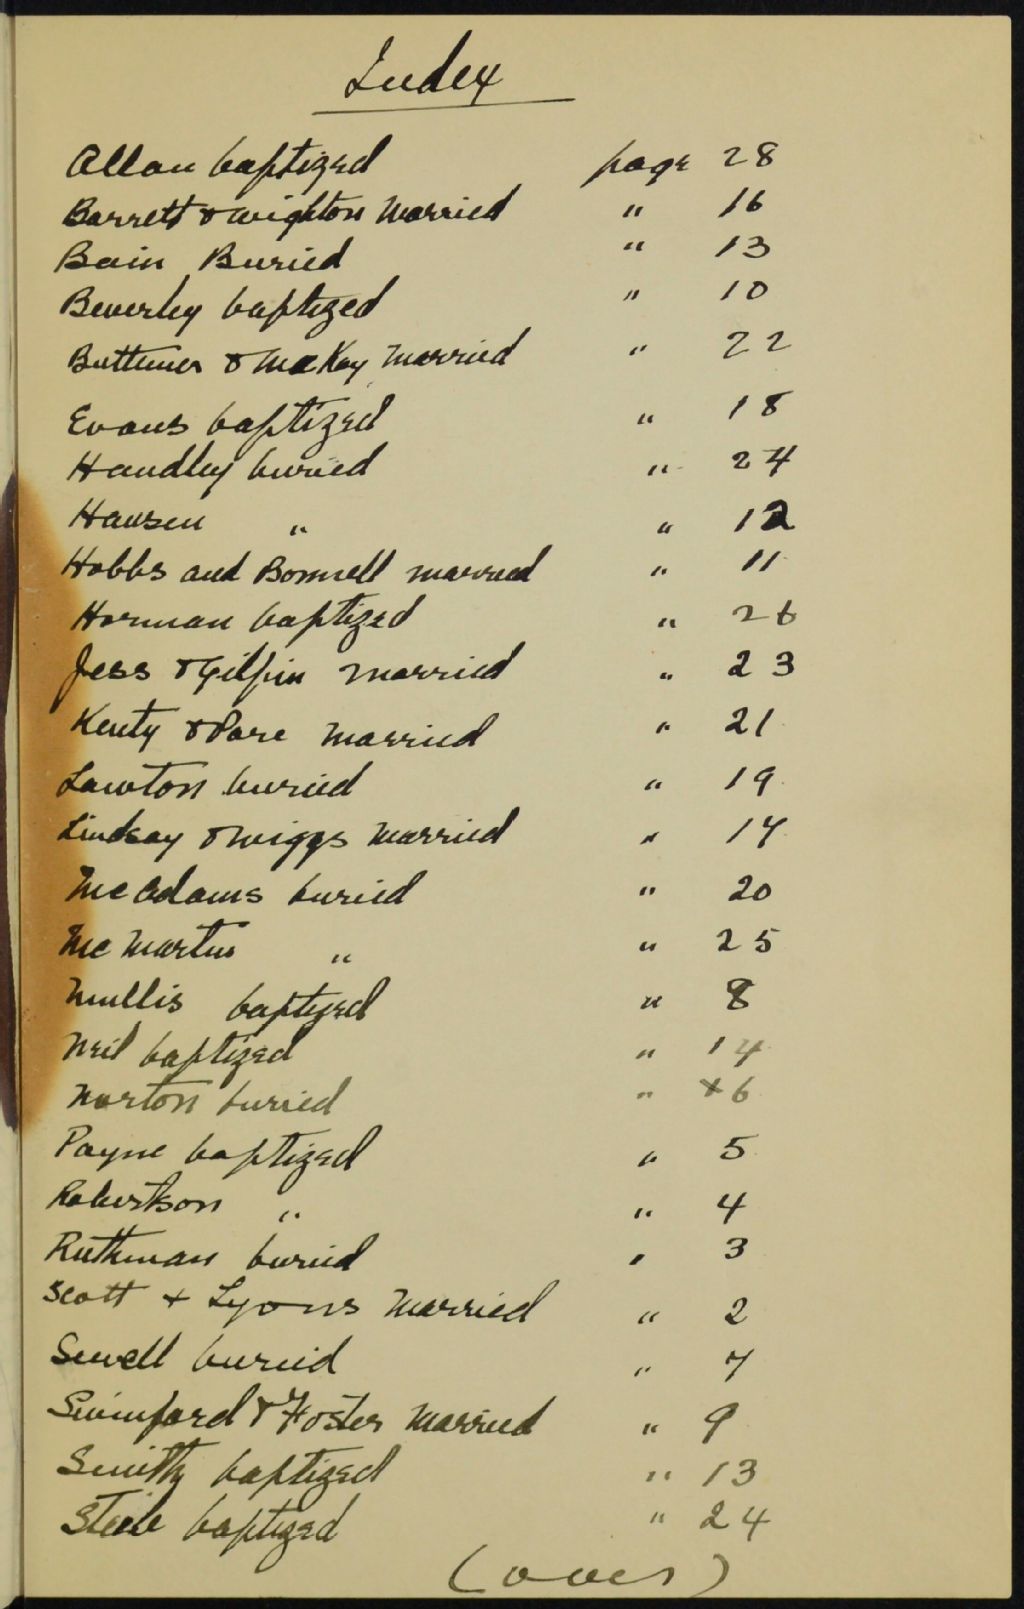 Index
Allan baptized page 28
Barrett & Wighton Married " 16
Bain Buried " 13
Beverley baptized " 10
Buttimer & McKay Married " 22
Evans baptized " 18
Handley buried " 24
Hansen " " 12
Hobbs and Bonnell married " 11
Horman baptized " 26
Jess & Gilpin married " 23
Kenty & Pare married " 21
Lawton buried " 19
Lindsay & Wiggs Married " 17
McAdams buried " 20
McMartin " " 25
Mullis baptized " 8
Neil baptized " 14
Norton buried " 6
Payne baptized " 5
Robertson " " 4
Ruthman buried " 3
Scott + Lyons Married " 2
Sewell buried " 7
Swinford & Foster Married " 9
Smith baptized " 13
baptized " 24
(over)